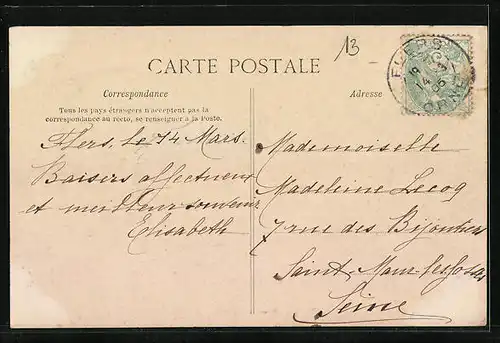 13
CARTE POSTALE
FLERS
ORNE
14 -3
Correspondance
Adresse
Tous les pays étrangers n'acceptent pas la
correspondance au recto, se renseigner à la Poste.
Flers, le 14 Mars.
Baisers affectueux
et meilleur souvenir
Elisabeth
Mademoiselle
Madeleine Lecoq
7 rue des Bijoutiers
Saint Maur les fossés
Seine